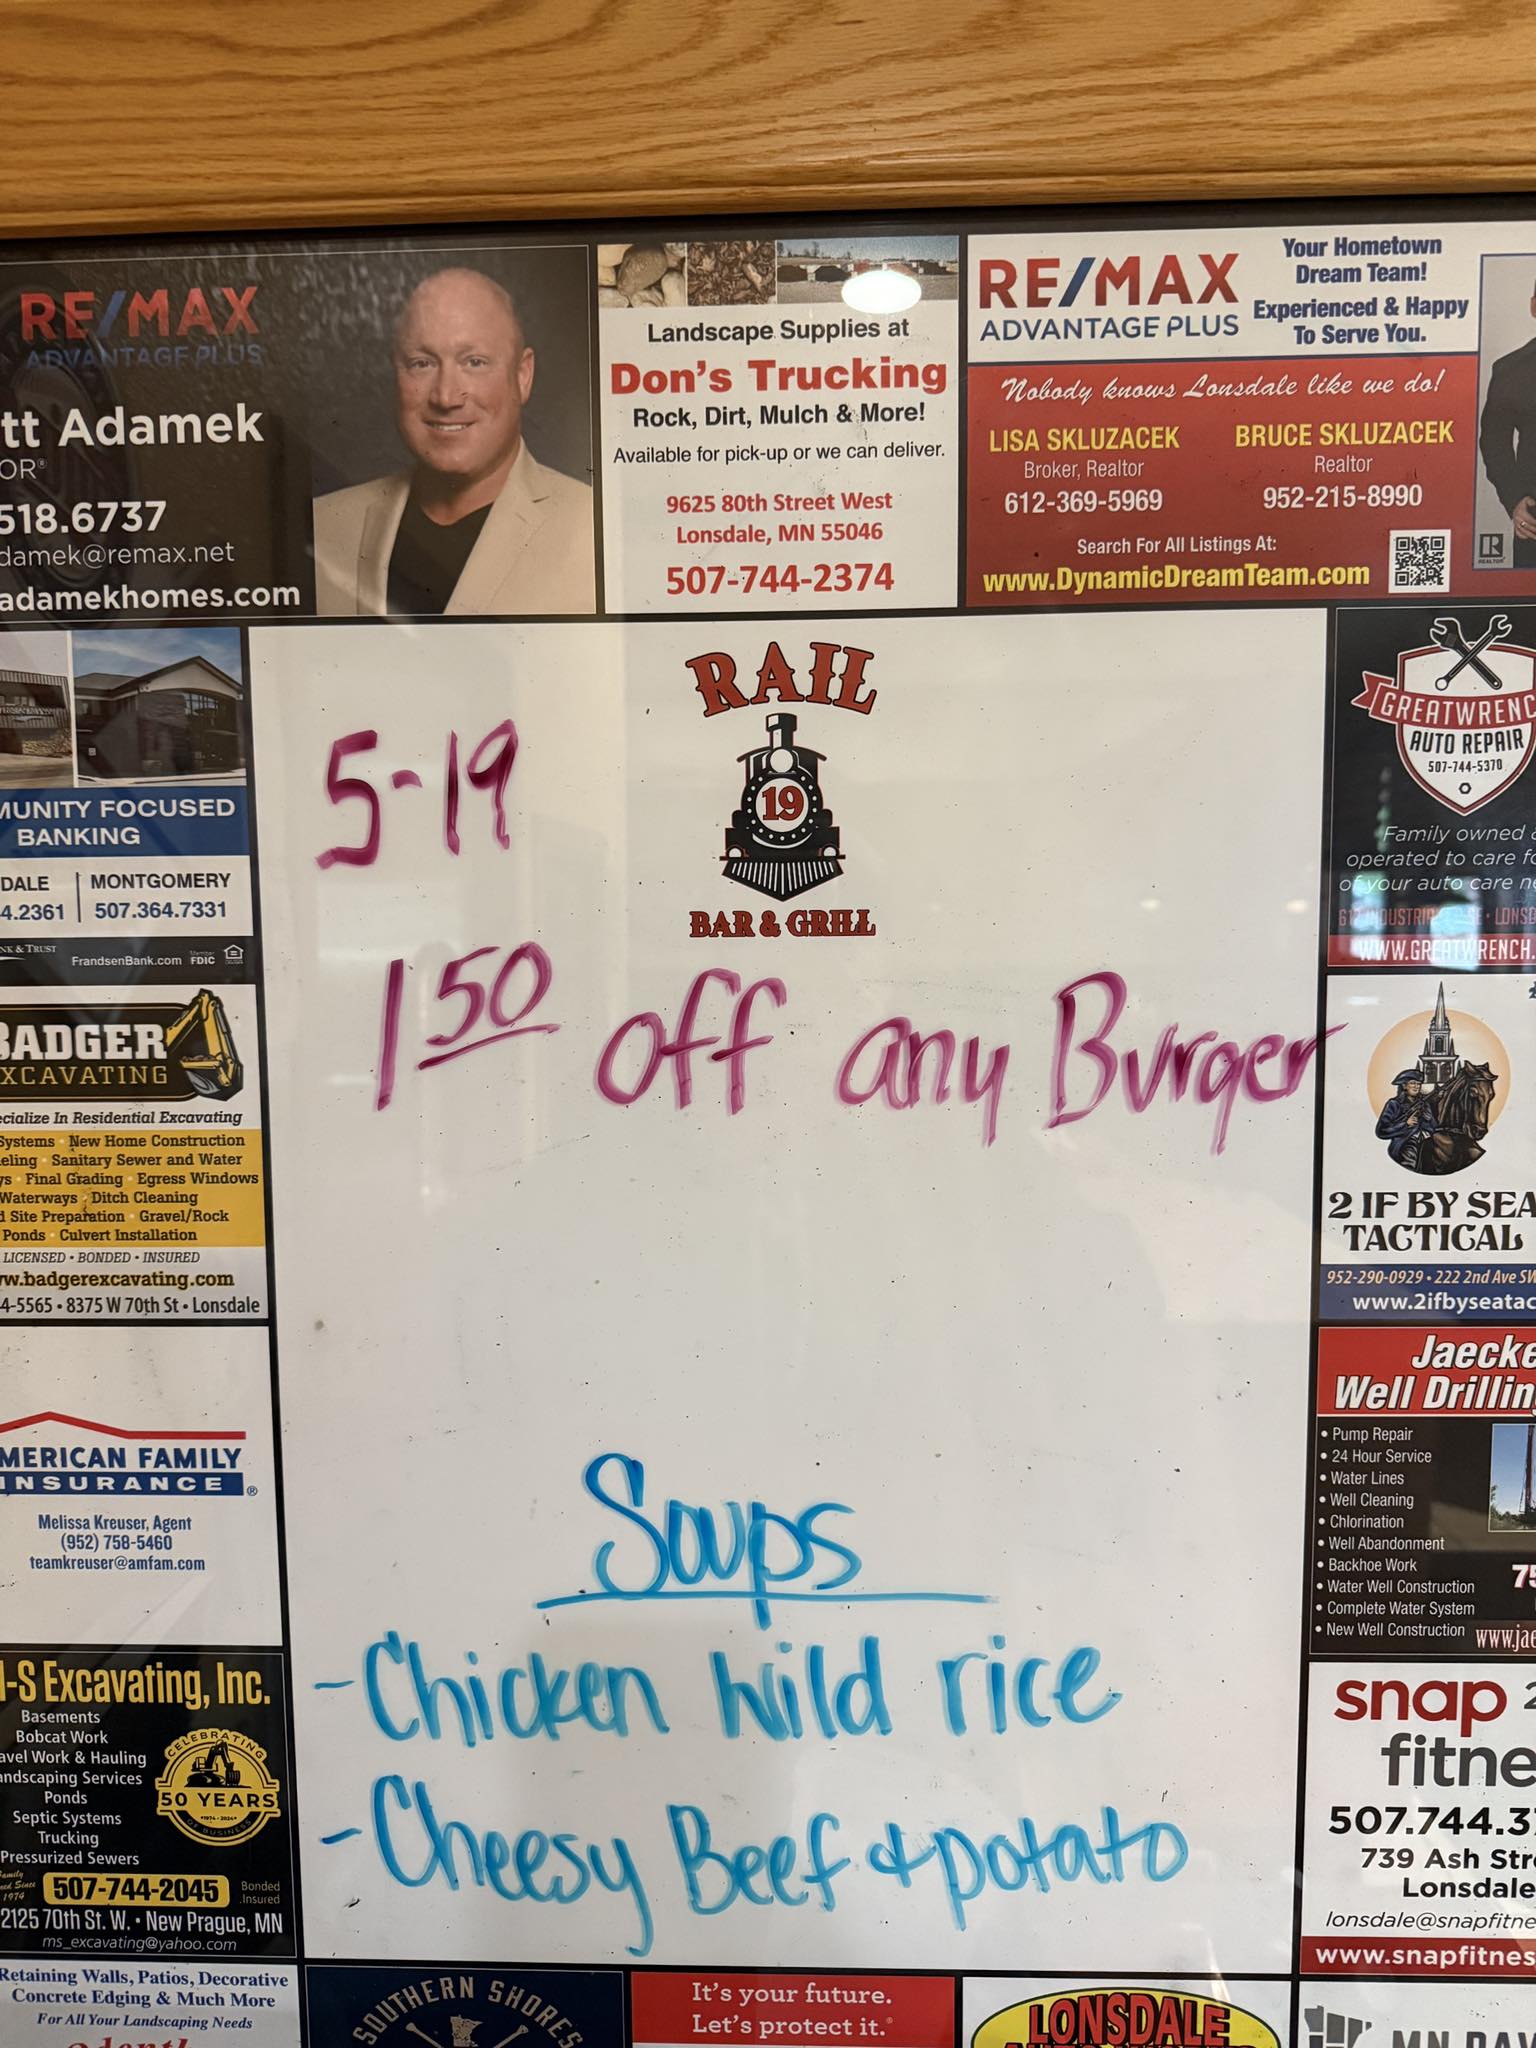 RE/MAX
ADVANTAGE PLUS
tt Adamek
OR®
518.6737
damek@remax.net
adamekhomes.com
Landscape Supplies at
Don's Trucking
Rock, Dirt, Mulch & More!
Available for pick-up or we can deliver.
9625 80th Street West
Lonsdale, MN 55046
507-744-2374
RE/MAX
ADVANTAGE PLUS
Your Hometown
Dream Team!
Experienced & Happy
To Serve You.
Nobody knows Lonsdale like we do!
LISA SKLUZACEK
Broker, Realtor
612-369-5969
BRUCE SKLUZACEK
Realtor
952-215-8990
Search For All Listings At:
www.DynamicDreamTeam.com
REALTOR®
MUNITY FOCUSED
BANKING
DALE
4.2361
MONTGOMERY
507.364.7331
NK & TRUST
FrandsenBank.com
Member
FDIC
BADGER
XCAVATING
ecialize In Residential Excavating
Systems • New Home Construction
eling • Sanitary Sewer and Water
ys • Final Grading • Egress Windows
Waterways • Ditch Cleaning
d Site Preparation • Gravel/Rock
Ponds • Culvert Installation
LICENSED • BONDED • INSURED
w.badgerexcavating.com
4-5565 • 8375 W 70th St • Lonsdale
MERICAN FAMILY
INSURANCE ®
Melissa Kreuser, Agent
(952) 758-5460
teamkreuser@amfam.com
-S Excavating, Inc.
Basements
Bobcat Work
avel Work & Hauling
andscaping Services
Ponds
Septic Systems
Trucking
Pressurized Sewers
CELEBRATING
50 YEARS
1974 - 2024
OF BUSINESS
Family
ed Since
1974
507-744-2045
Bonded
Insured
2125 70th St. W. • New Prague, MN
ms_excavating@yahoo.com
Retaining Walls, Patios, Decorative
Concrete Edging & Much More
For All Your Landscaping Needs
RAIL
19
BAR & GRILL
5-19
1 50 off any Burger
Soups
- Chicken wild rice
- Cheesy Beef & potato
GREATWRENC
AUTO REPAIR
507-744-5370
Family owned &
operated to care fo
of your auto care ne
WWW.GREATWRENCH.
2 IF BY SEA
TACTICAL
952-290-0929 • 222 2nd Ave SW
www.2ifbyseatac
Jaecke
Well Drillin
• Pump Repair
• 24 Hour Service
• Water Lines
• Well Cleaning
• Chlorination
• Well Abandonment
• Backhoe Work
• Water Well Construction
• Complete Water System
• New Well Construction
75
www.jae
snap 2
fitne
507.744.37
739 Ash Stre
Lonsdale
lonsdale@snapfitne
www.snapfitnes
SOUTHERN SHORES
It's your future.
Let's protect it.®
LONSDALE
MN DAV